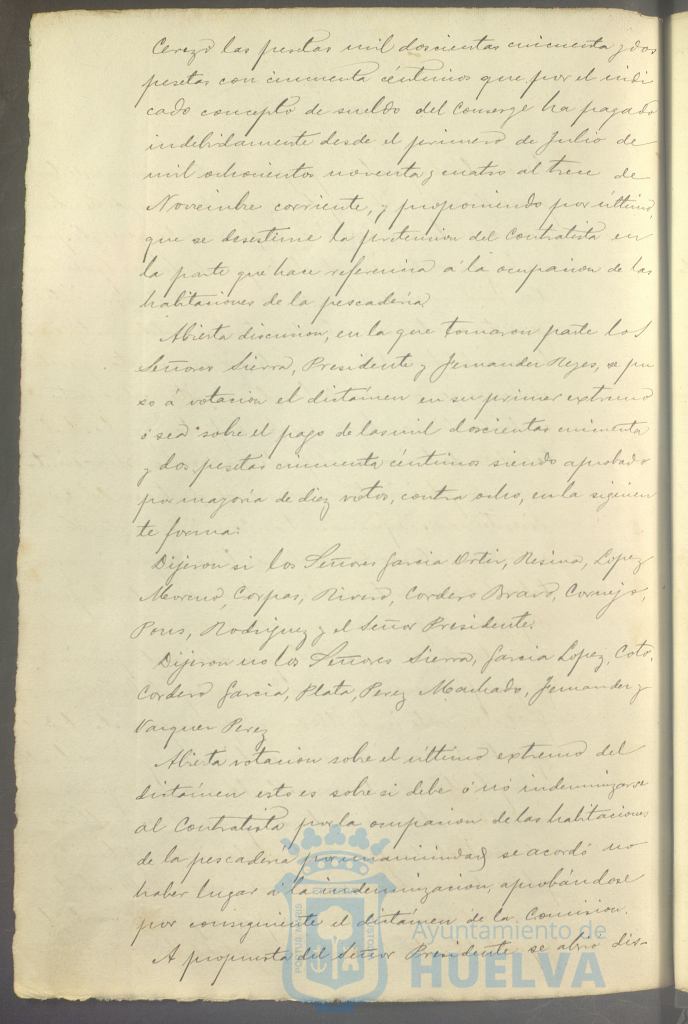 Cerezo las pesetas mil doscientas cincuenta y dos
pesetas con cincuenta céntimos que por el indi
cado concepto de sueldo del Conserge ha pagado
indebidamente desde el primero de Julio de
mil ochocientos noventa y cuatro al trece de
Noviembre corriente, y proponiendo por último,
que se desestime la pretension del Contratista en
la parte que hace referencia á la ocupacion de las
habitaciones de la pescadería
Abierta discusion, en la que tomaron parte los
Señores Sierra, Presidente y Fernandez Reyes, se pu
so á votacion el dictámen en su primer extremo
ó sea sobre el pago de las mil doscientas cincuenta
y dos pesetas cincuenta céntimos siendo aprobado
por mayoría de diez votos, contra ocho, en la siguien
te forma:
Dijeron si los Señores Garcia Ortiz, Resina, Lopez
Moreno, Corpas, Rivero, Cordero Bravo, Cornejo,
Pons, Rodriguez y el Señor Presidente.
Dijeron no los Señores Sierra, Garcia Lopez, Coto,
Cordero Garcia, Plata, Perez Machado, Fernandez y
Vazquez Perez
Abierta votacion sobre el último extremo del
dictámen esto es sobre si debe ó nó indemnizarse
al Contratista por la ocupacion de las habitaciones
de la pescadería por unanimidad se acordó no
haber lugar á la indemnizacion, aprobándose
por consiguiente el dictámen de la Comision.
A propuesta del Señor Presidente se abrió dis-
Ayuntamiento de
HUELVA